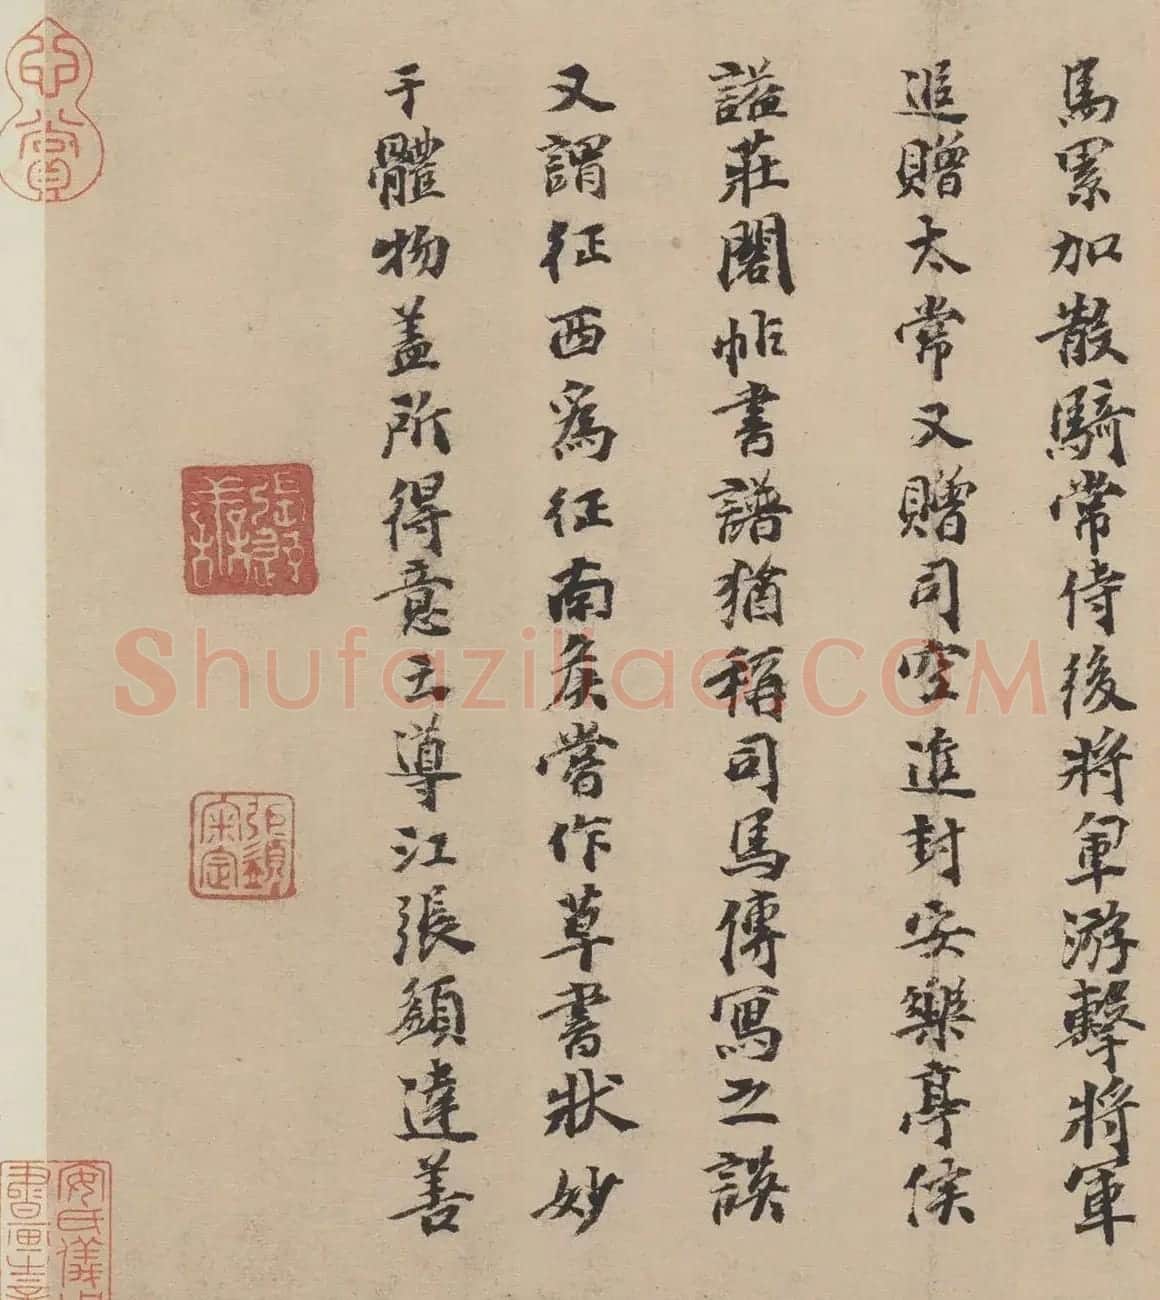 馬累加散騎常侍後將軍游擊將軍
追贈太常又贈司空進封安樂亭侯
謚莊閣帖書譜猶稱司馬傳寫之誤
又謂征西為征南矦嘗作草書狀妙
于體物盖所得意土導江張顉達善
Shufaziliao.COM